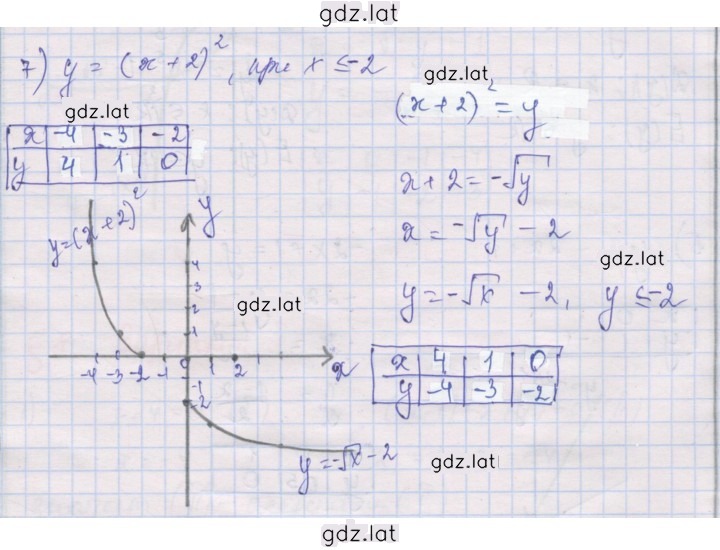 gdz.lat
7) y = (x+2)², при x ≤ -2
gdz.lat
(x+2)² = y
gdz.lat
x | -4 | -3 | -2
y | 4 | 1 | 0
x+2 = -√y
x = -√y - 2
y=(x+2)²
y
gdz.lat
gdz.lat
y = -√x - 2, y ≤ -2
4
3
2
1
-4 -3 -2 -1 0 1 2 x
-1
-2
x | 4 | 1 | 0
y | -4 | -3 | -2
y=-√x-2
gdz.lat
gdz.lat